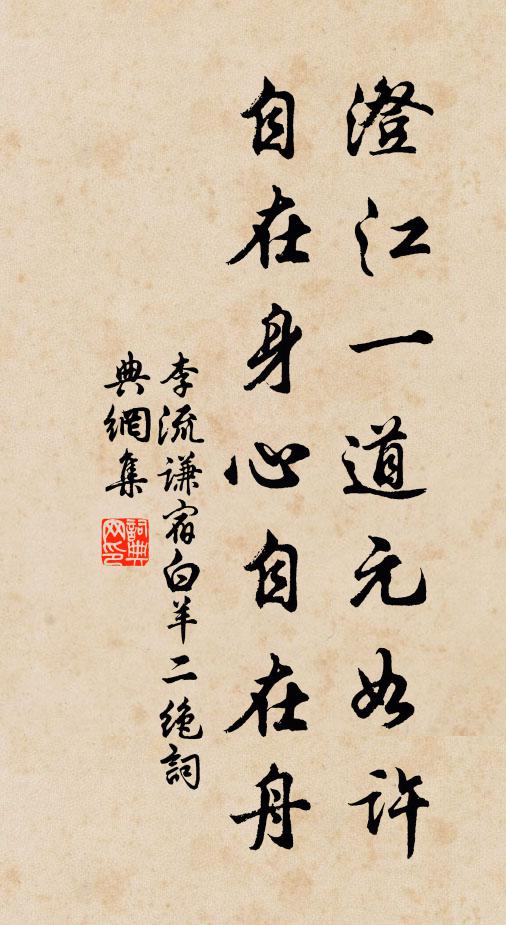 澄江一道元如許
自在身心自在舟
李流謙宿白羊二絶詞
典網集
詞典
网印